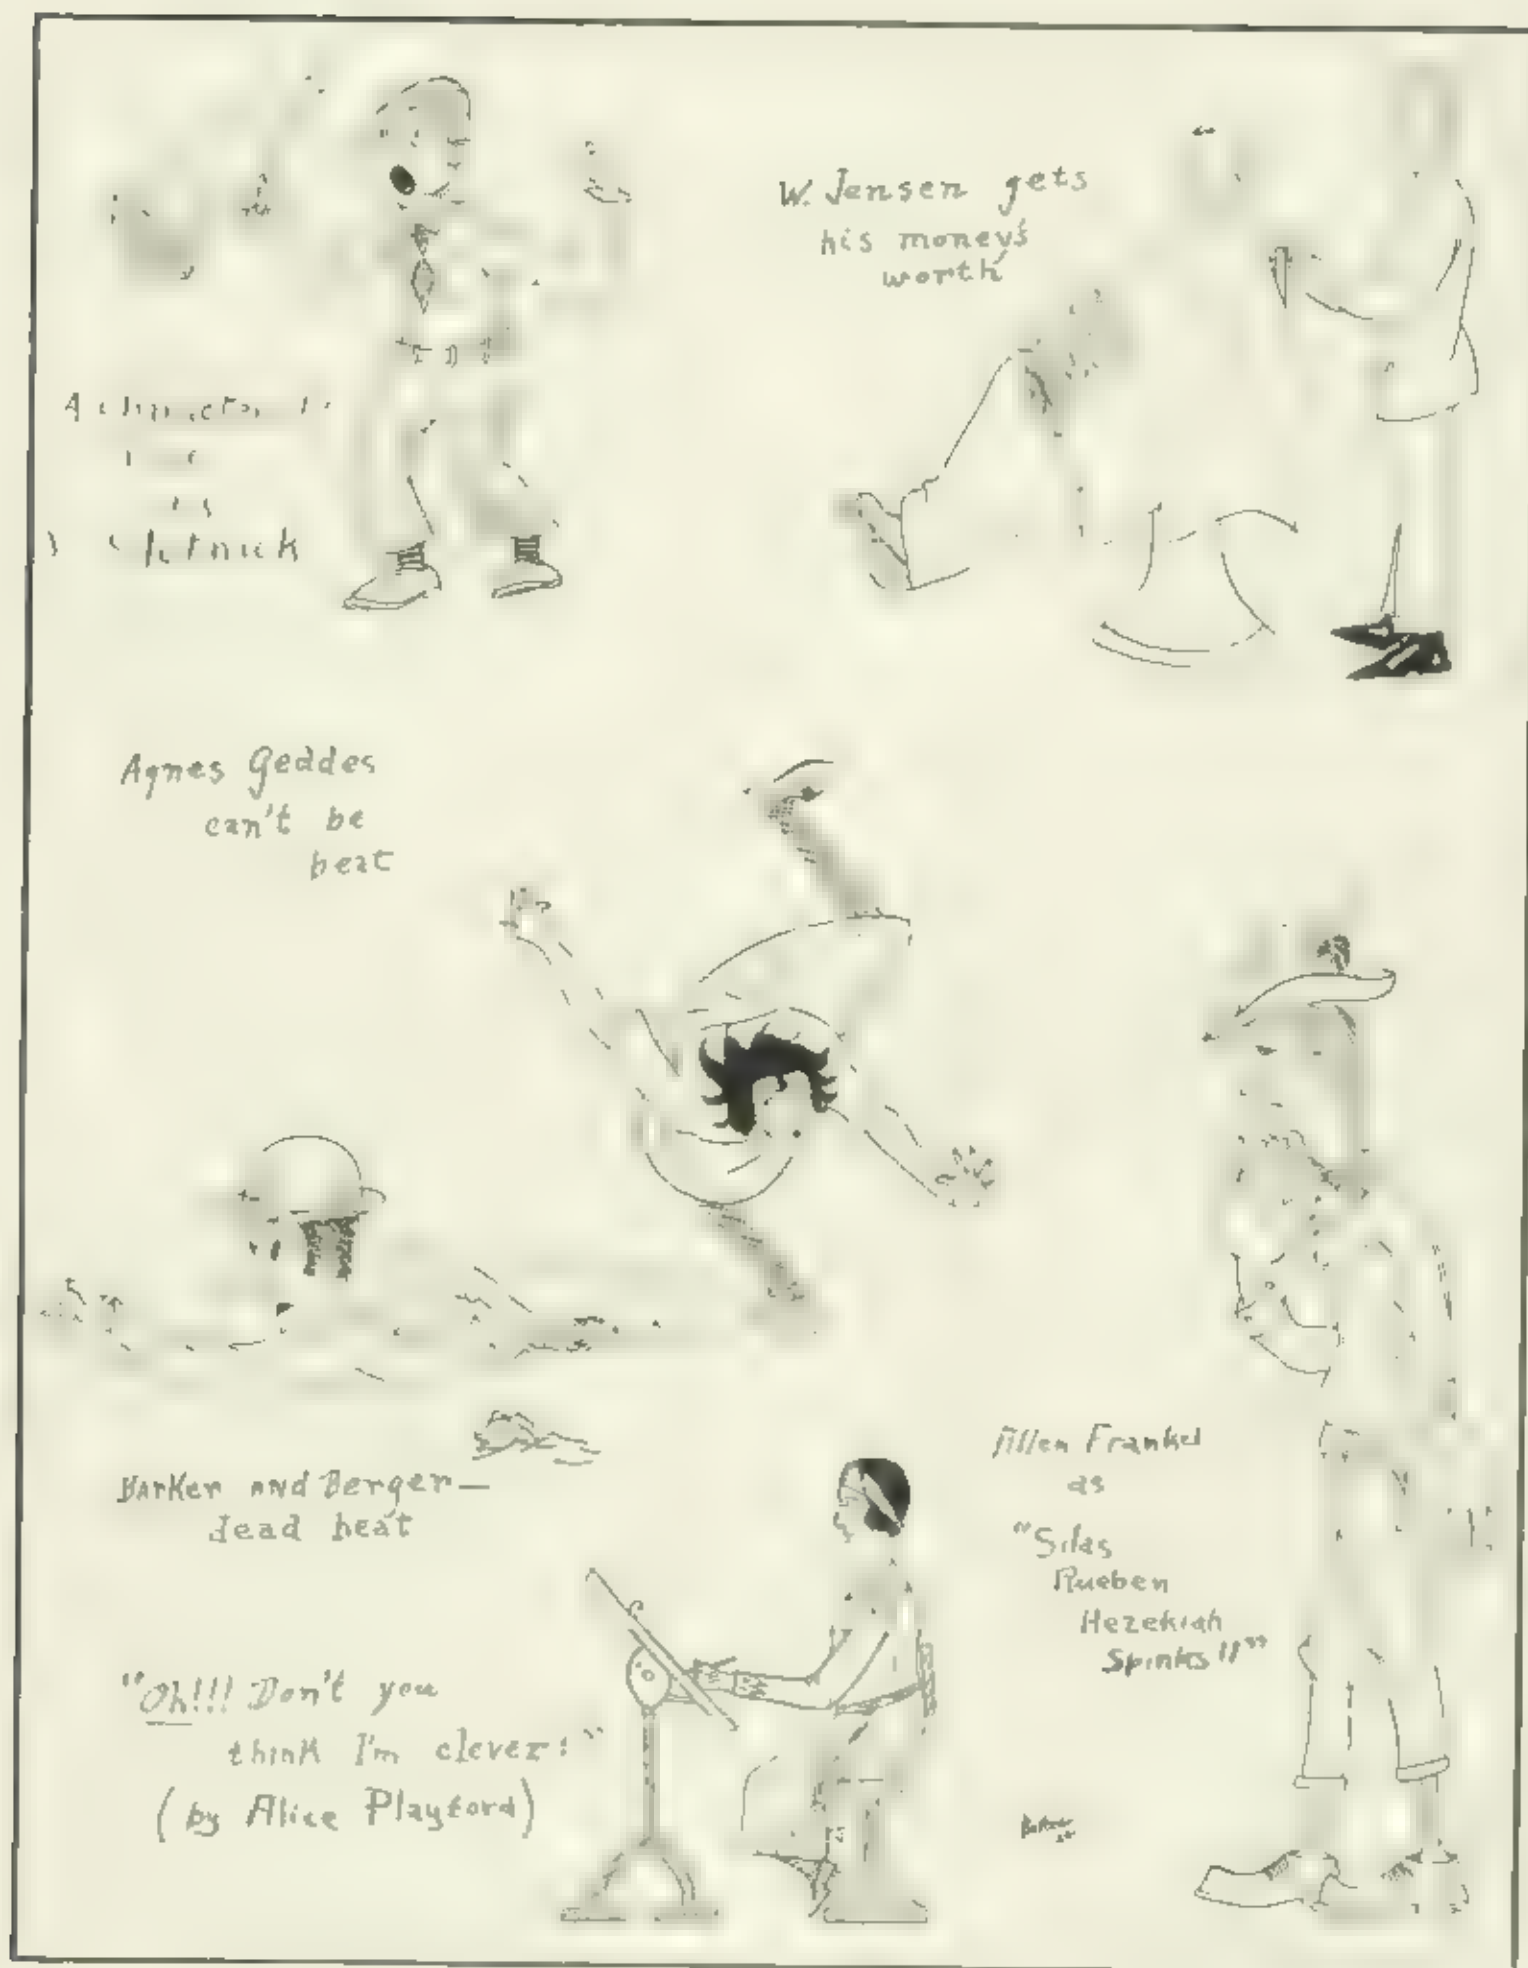 W. Jensen gets
his money's
worth
A
Agnes Geddes
can't be
beat
Barker and Berger—
dead heat
Allen Frankel
as
"Silas
Rueben
Hezekiah
Spinks!!"
"Oh!!! Don't you
think I'm clever!"
(by Alice Playford)